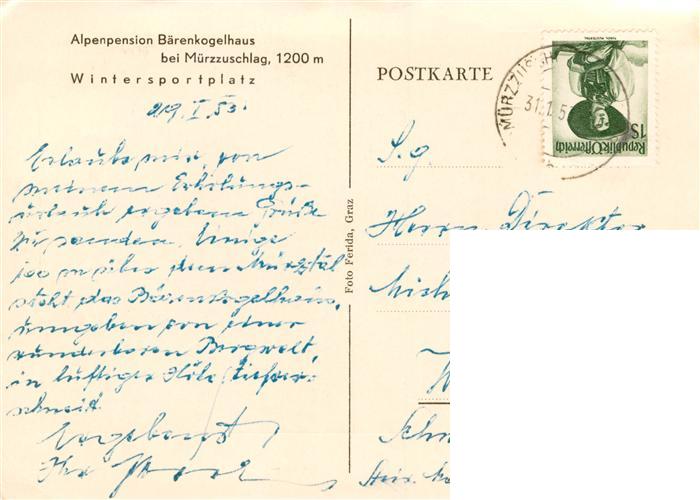 Alpenpension Bärenkogelhaus
bei Mürzzuschlag, 1200 m
Wintersportplatz
29. I. 53.
Erlaube mir, von
meinem Erholungs-
urlaub ergebene Grüße
zu senden. Einige
100 m über dem Mürztal
steht das Bärenkogelhaus,
umgeben von einer
wunderbaren Bergwelt,
in luftiger Höhe tiefver-
schneit.
Ergebenst
Ihr
Foto Ferida, Graz
POSTKARTE
MÜRZZUSCH
31.1.5
1S
Republik Österreich
S.g.
Herrn Direktor